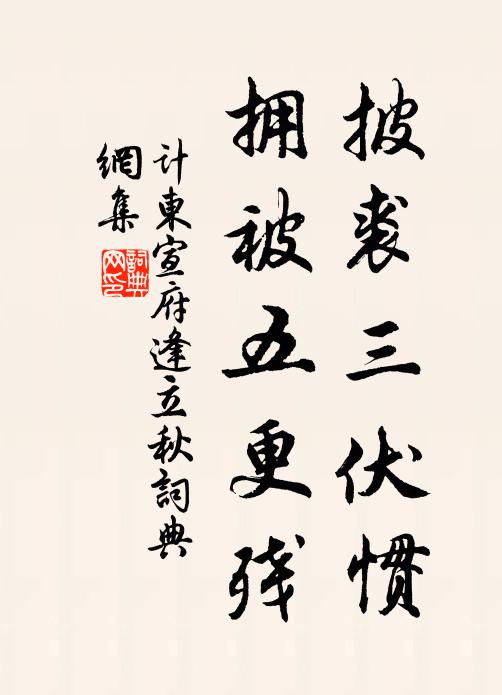 披裘三伏惯
拥被五更残
计東宣府逢立秋詞典
網集
詞典
网印